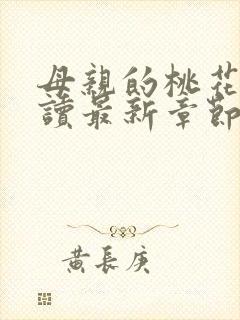 母親的桃花
讀最新章節
黃長庚